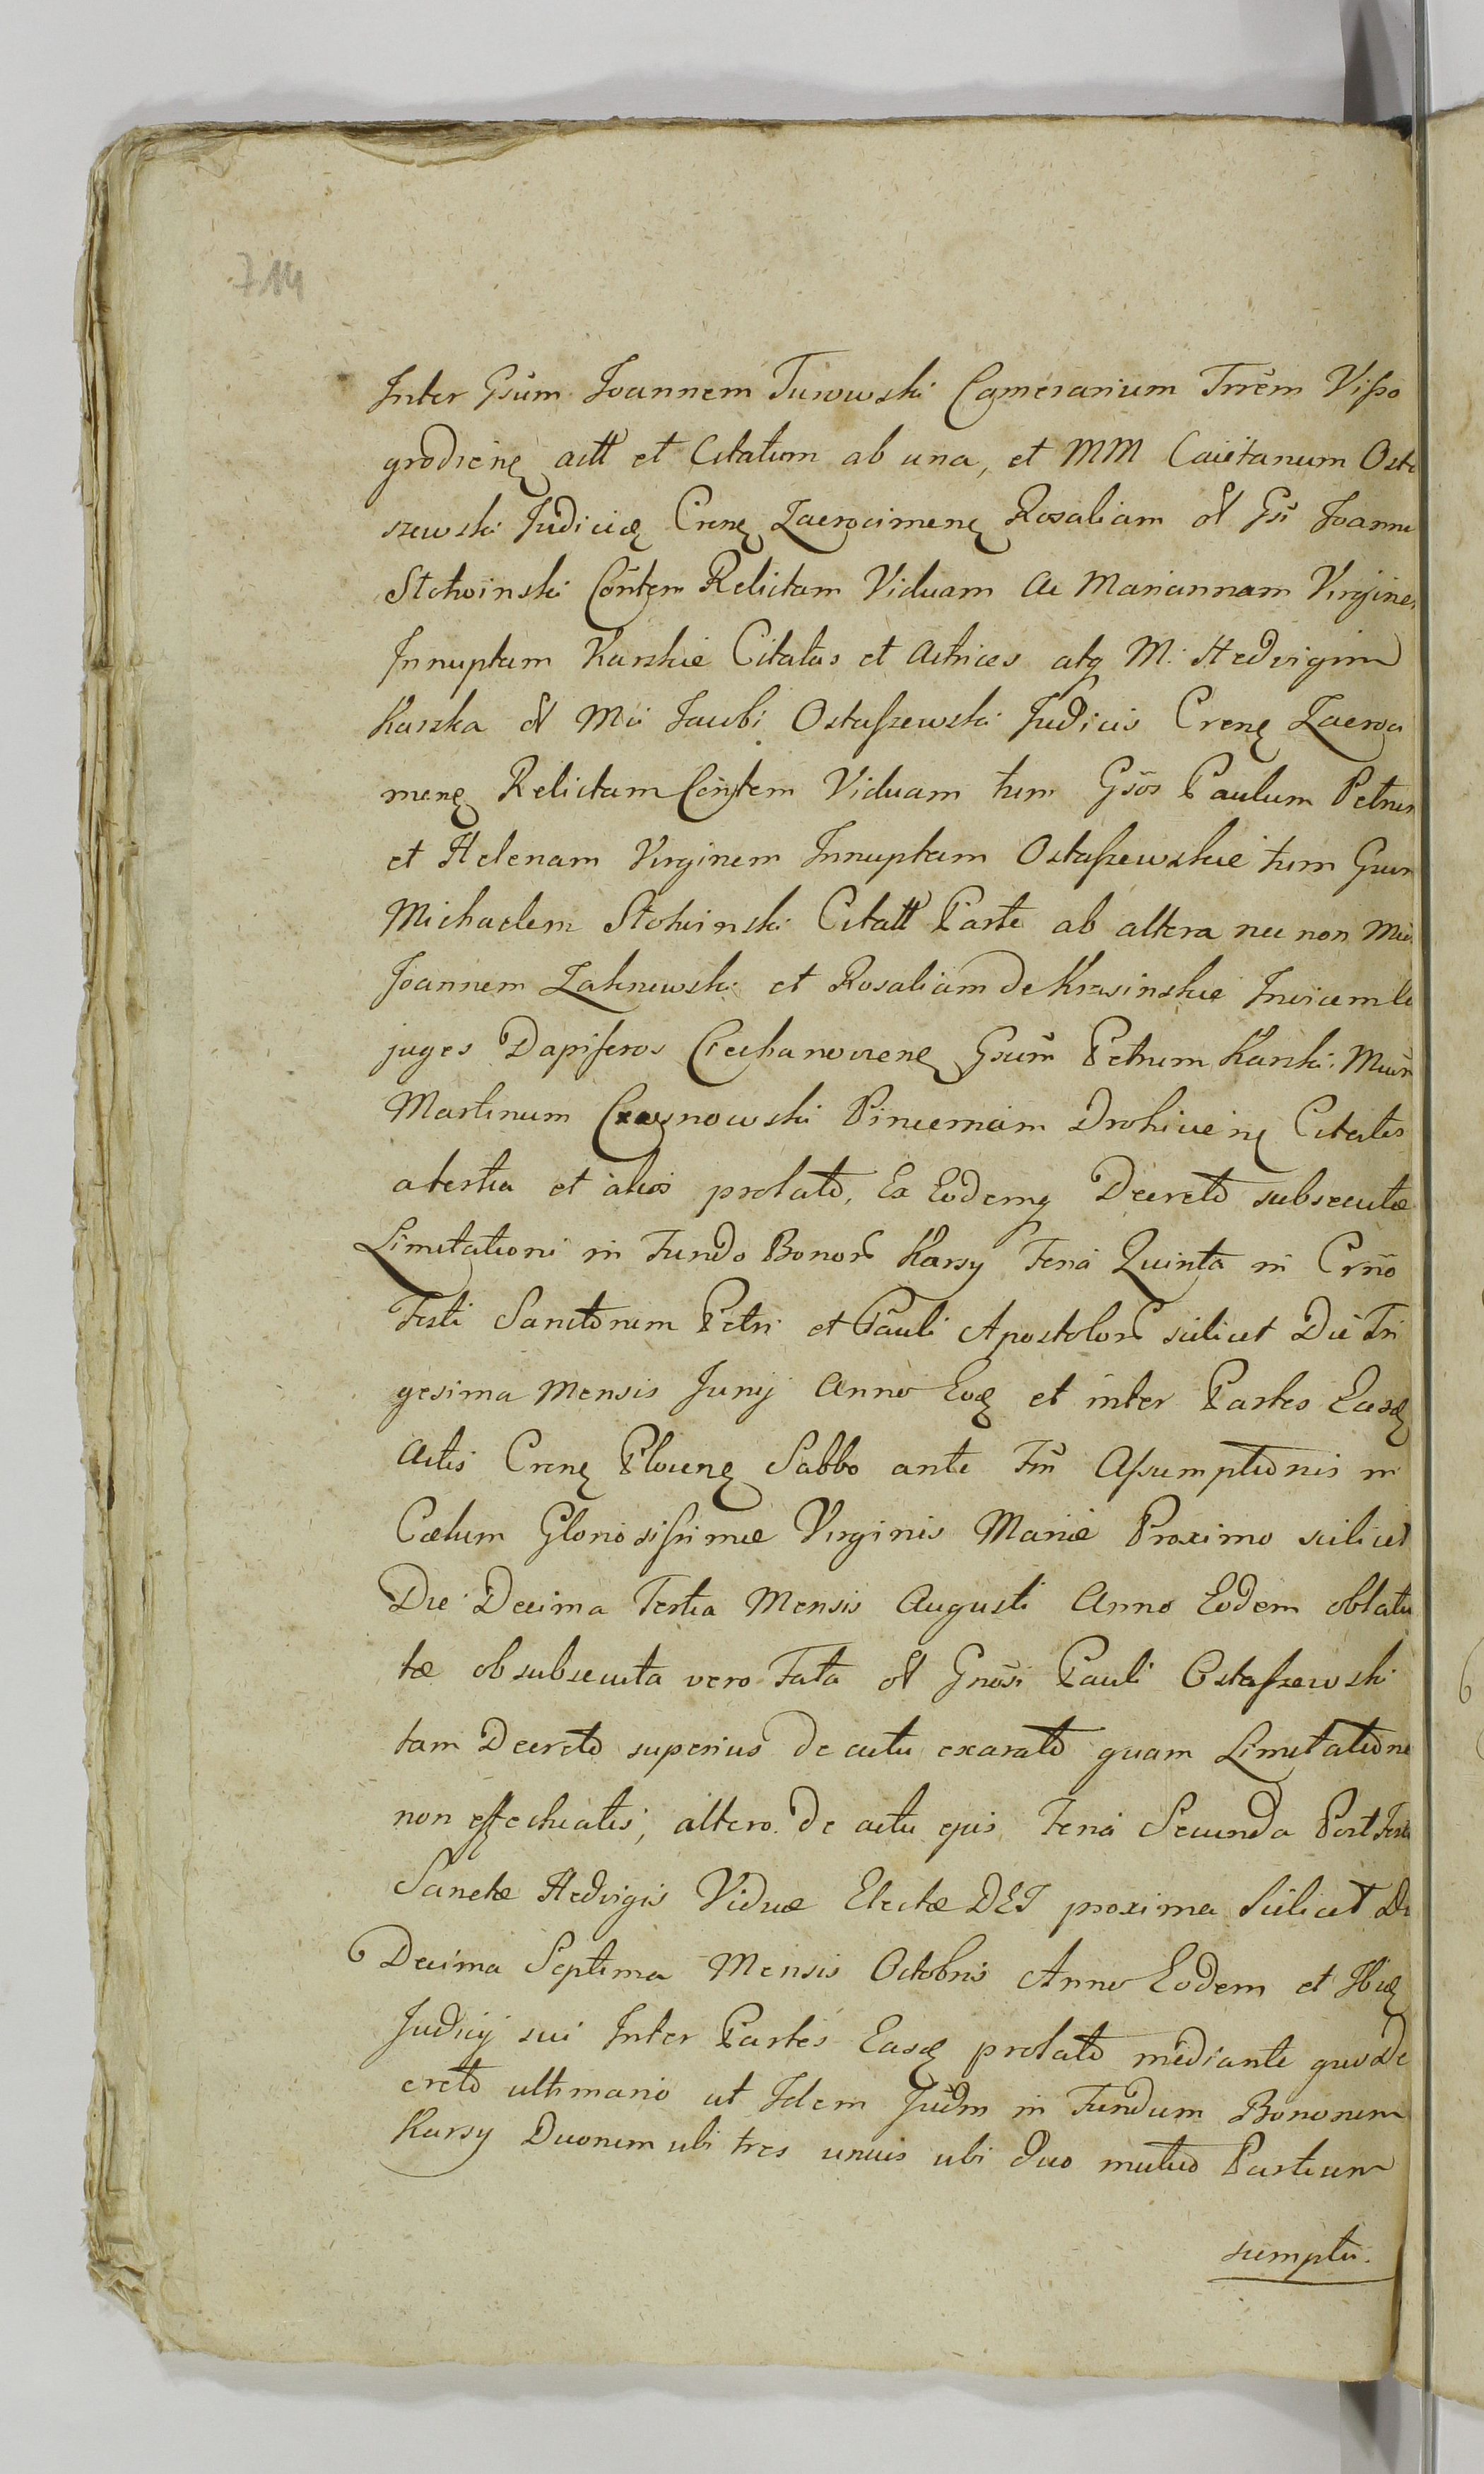 714
Inter Gsum Joannem Turowski Camerarium Trrem Visso
grodiens actt et Citatum ab una, et MM Caietanum Osta
szewski Judicid Crens Zacrocimens Rosaliam ol Gsi Joanni
Stohoinski Contem Relictam Viduam ac Mariannam Virginem
Innuptam Karskie Citatas et Actrices atq M. Hedvigim
Karska ol Mci Jacobi Ostaszewski Judicis Crens Zacroci
mens Relictam Contem Viduam tum Gsos Paulum Petrum
et Helenam Virginem Innuptam Ostaszewskie tum Gsum
Michaelem Stohoinski Citatt Parte ab altera nec non
Joannem Zakrzewski et Rosaliam de Invicem
juges Dapiferos Ciechanoviens Gsum Petrum Karski
Martinum Pincernam Drohiciens Citatos
a tertia et alios prolato, Ex Eodemq Decreto subsecutæ
Limitationi in Fundo Bonor Karsy Feria Quinta in Crno
Festi Sanctorum Petri et Pauli Apostolor scilicet Die Tri
gesima Mensis Junij Anno Eod et inter Partes Easd
Actis Crens Plocens Sabbo ante Fm Assumptionis in
Cœlum Gloriosissimæ Virginis Mariæ Proximo scilicet
Die Decima Tertia Mensis Augusti Anno Eodem oblata
tæ ob subsecuta vero Fata ol Gnosi Pauli Ostaszewski
tam Decreto superius de actu exarato quam Limitatione
non effectuatis, altero de actu ejus Feria Secunda Post Festu
Sanctæ Hedvigis Viduæ Electæ DEI proxima Scilicet Di
Decima Septima Mensis Octobris Anno Eodem et Ibid
Judicij sui Inter Partes Easd prolato mediante quo De
creto ultimario ut Idem Judm in Fundum Bonorum
Karsy Duorum ubi tres unius ubi duo mutuo Partium
sumptu.